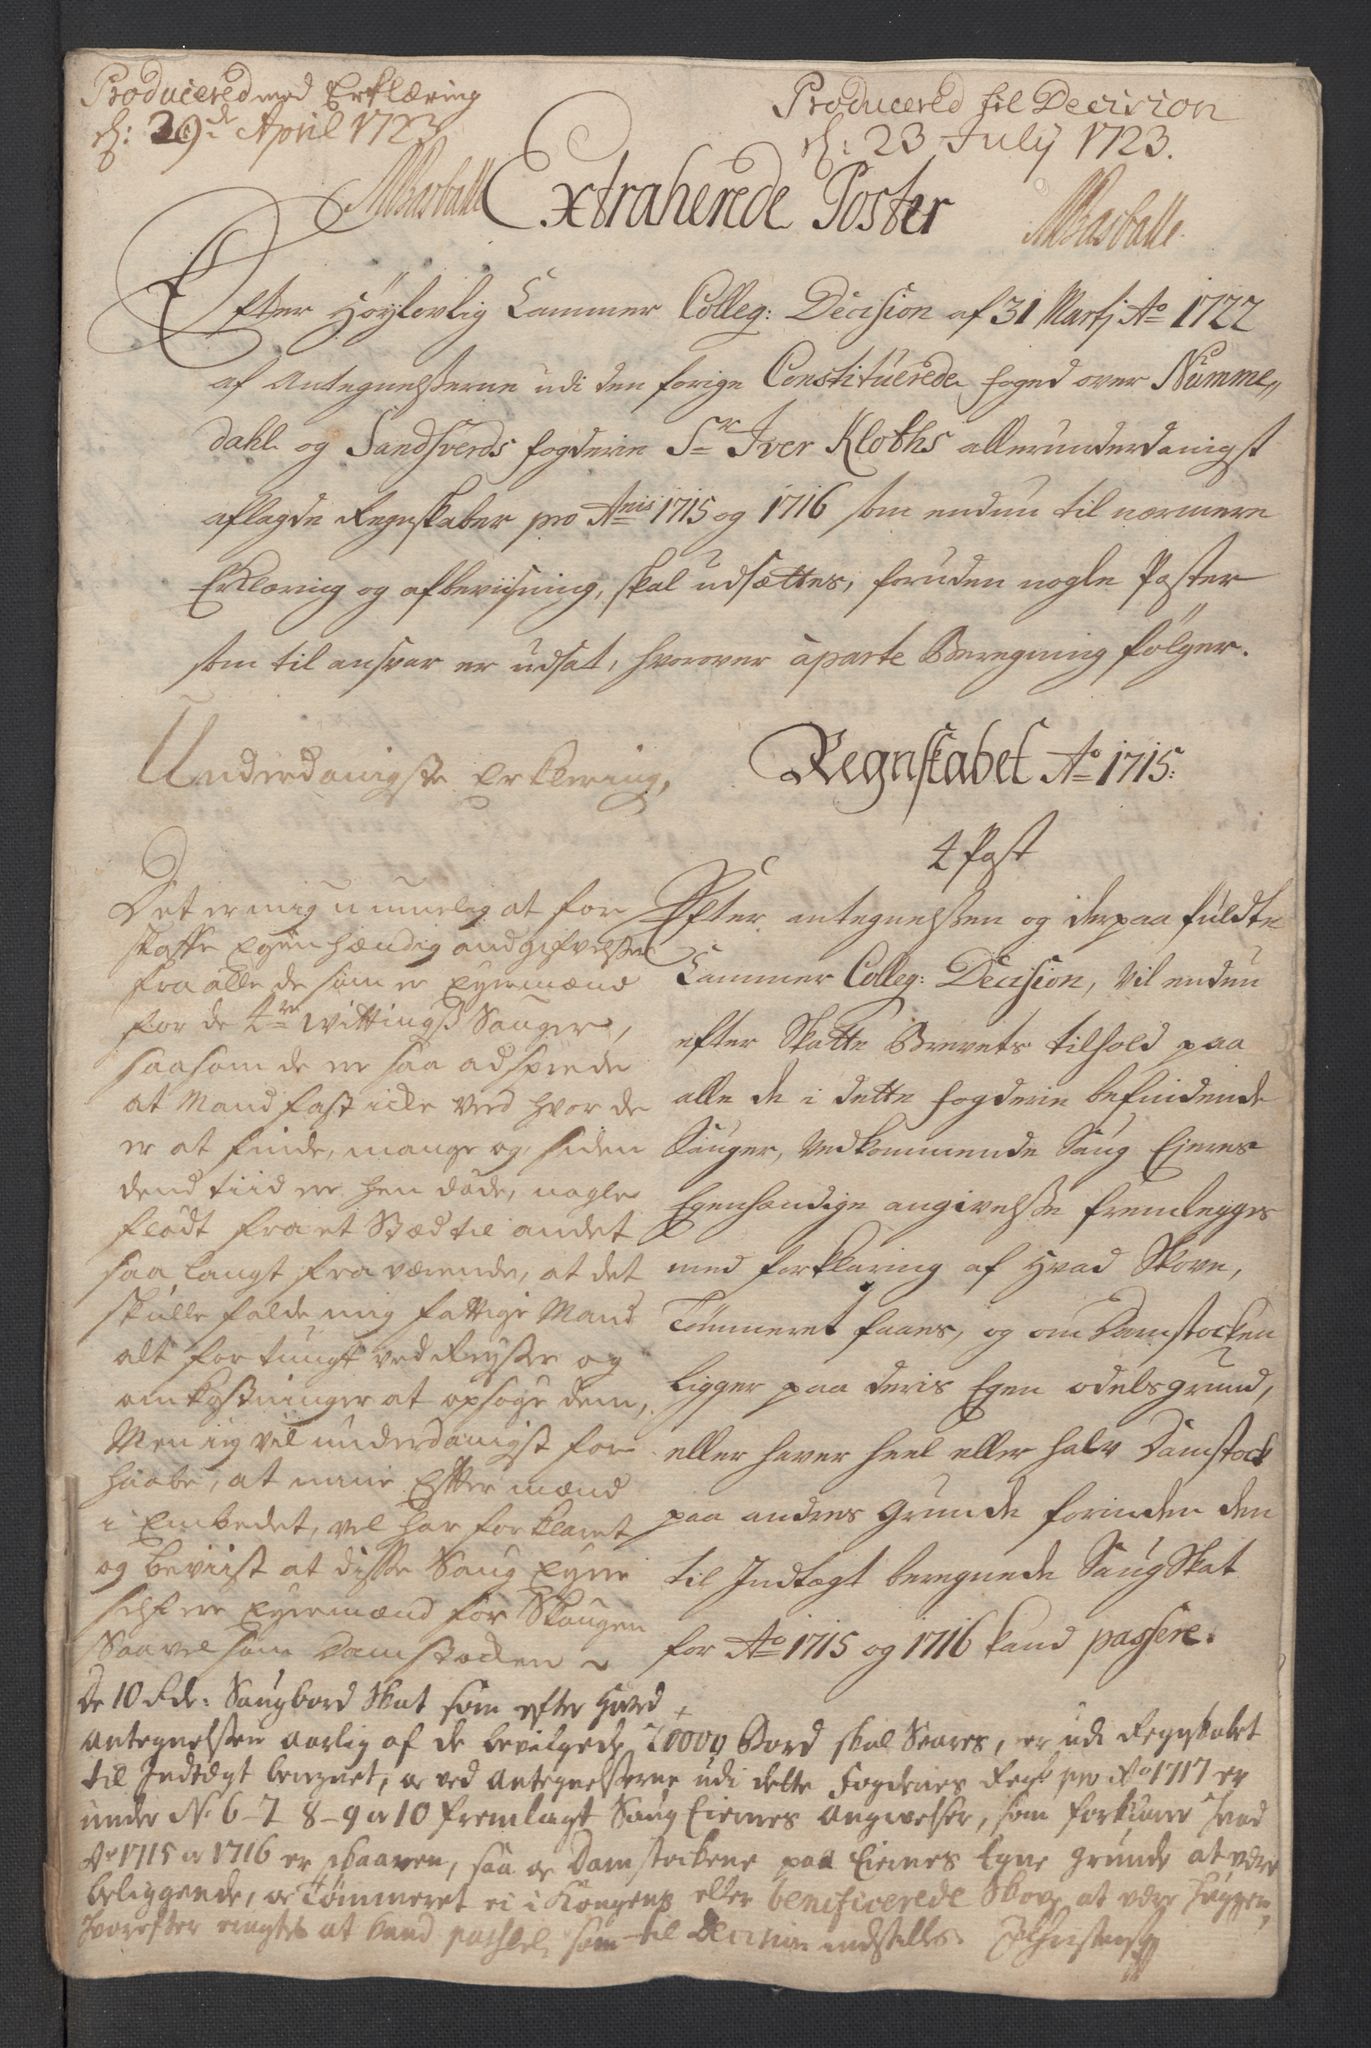 Producered med Erklæring
d: 29de April 1723
MBasballe
Producered til Decision
d: 23 July 1723.
MBasballe
Extraherede Poster
Efter Höylovlig Cammer Colleg: Decision af 31 Martj Ao 1722
af Antegnelsserne udi den forige Constituerede foged over Numme„
dahl og Sandsverds fogderie Sr Iver Kloths allerunderdanigst
aflagde Regnskaber pro Anis 1715 og 1716 som endnu til nærmere
Erklæring og afbeviisning, skal udsættes, foruden nogle Poster
som til ansvar er udsat, hvorover aparte Beregning fölger.
Underdanigste Erklering,
Det er mig u-muelig at for
skaffe Egenhændig andgifvelsse
fra alle de som er Eyermænd
for de 4re Wittingß Sauger,
saasom de er saa adsprede
at Mand fast icke veed hvor de
er at finde, mange og siden
dend tiid er hen döde, nogle
flödt fra et Stæd til andet
saa langt fra værende, at det
skulle falde mig fattige Mand
alt for tungt ved Reysser og
omkostninger at opsöge dem,
Men ieg vil underdanigst for
haabe, at mine Efftermænd
i Embedet, vel har forklaret
og beviist at disse Saug Eyere
self ere Eyermænd for Skougen
Saavel som Damstocken
Regnskabet Ao 1715:
4 Post
Efter antegnelssen og derpaa fuldte
Cammer Colleg: Decision, vil endnu
efter Skatte Brevets tilhold paa
alle de i dette fogderie befindende
Sauger, Vedkommende Saug Eieres
Egenhændige angivelsse fremlegges
med forklaring af hvad Skove,
Tömmeret faaes, og om Damstocken
ligger paa deris Egen odelsgrund,
eller haver heel eller halv Damstock
paa andres Grunde forinden den
til Indtægt beregnede Saug Skat
for Ao 1715 og 1716 kand passere.
De 10 Rdr. Saugbord Skat som efter hved
Antegnelssen aarlig af de bevilgede 20000 Bord skal Svares, er udi Regnskabet
til Indtægt beregnet, og ved Antegnelsserne udi dette Fogderies Regsk pro Ao 1717 er
under No 6-7 8-9 og 10 fremlagt Saug Eiernes Angivelser, som forklarer hvad
Ao 1715 og 1716 er skaaren, saa og Damstockene paa Eiernes Egne Grunde at være
beliggende, og Tömmeret ei i Kongens eller beneficerede Skove at være huggen,
hvorefter at kand passere, som til Decision indstilles.